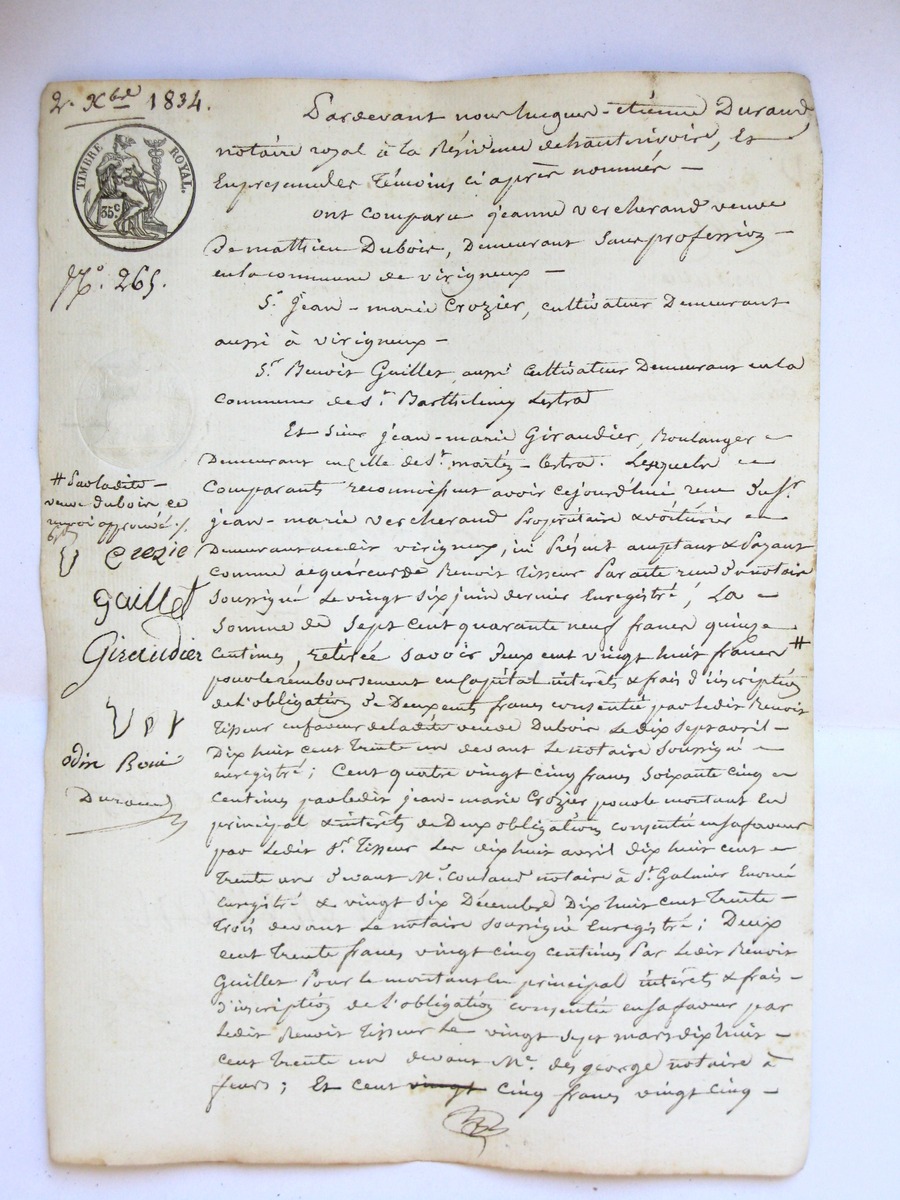 2. Xbre 1834.
TIMBRE ROYAL.
35c
No. 265.
Pardevant nous hugues-étienne Durand
notaire royal à la Résidence de hautrivoire, Et
En presence des Témoins ci après nommés —
ont comparu jeanne vercherand veuve
De mathieu Dubois, Demeurant Sans profession —
en la commune de virigneux —
Sr. Jean-marie Crozier, cultivateur Demeurant
aussi à virigneux —
Sr. Benoit Guillet aussi cultivateur Demeurant en la
Commune de St. Barthelemy Lestra
Et Sieur jean-marie Giraudier, Boulanger
Demeurant en celle de St. martin-lestra. Lesquels
Comparants reconnoissent avoir cejourd'hui reçu du Sr.
jean-marie vercherand Propriétaire & voiturier
Demeurant audit virigneux, ici Présent acceptant & Payant
comme acquéreur de Benoit Tisseur Par acte reçu du notaire
Soussigné Le vingt Six juin dernier Enregistré, La
Somme de Sept cent quarante neuf francs quinze
Centimes, retirée Savoir Deux cent vingt huit francs #
pour le remboursement en Capital intérêts & frais d'inscription
de L'obligation de Deux cents francs consentie par ledit Benoit
Tisseur en faveur de ladite veuve Dubois Le dix Sept avril —
Dix huit cent Trente un devant Le notaire Soussigné
enregistré; Cent quatre vingt cinq francs Soixante Cinq
Centimes par ledit jean-marie Crozier pour le montant En
principal & intérêts de Deux obligations consenties en sa faveur
par Ledit Sr. Tisseur Les dix huit avril dix huit cent
trente un devant Me. notaire à St. Galmier
Enregistré & vingt Six Décembre Dix huit cent Trente-
Trois devant Le notaire Soussigné Enregistré; Deux
cent Trente francs vingt cinq centimes Par Ledit Benoit
Guillet Pour le montant en principal intérêts & frais —
d'inscription de L'obligation consentie en sa faveur par
Ledit Benoit Tisseur Le vingt Sept mars dix huit —
cent Trente un devant Me. des george notaire à
feurs; Et Cent vingt cinq francs vingt Cinq —
# Par ladite —
veuve Dubois ce
renvoi approuvé
Crozie
Gaillet
Giraudier
odin
Durand